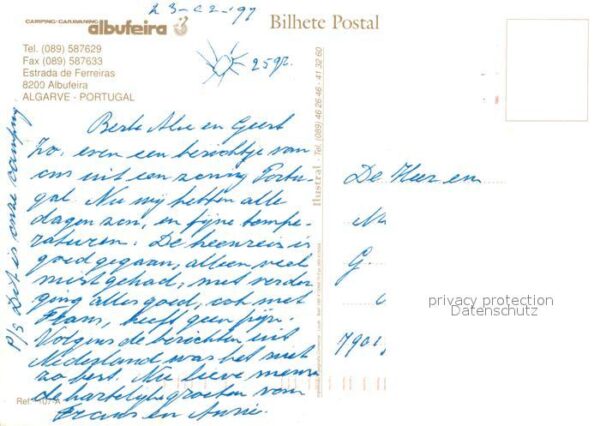 23-02-97
CAMPING-CARAVANING
albufeira
Bilhete Postal
Tel. (089) 587629
Fax (089) 587633
Estrada de Ferreiras
8200 Albufeira
ALGARVE - PORTUGAL
25gr.
Beste en Geert
Zo, even een berichtje van
ons uit een zonnig Portu-
gal. Nu wij hebben alle
dagen zon, en fijne tempe-
raturen. De heenreis is
goed gegaan, alleen veel
mist gehad, met verder
ging alles goed, ook met
Frans, heeft geen pijn.
Volgens de berichten uit
Nederland was het niet
zo best. Nu lieve mensen
de hartelijke groeten van
Frans en Annie.
P/s Dit is onze camping
De Heer en
G.
7901
Ilustral - Tel. (089) 46 26 46 - 41 32 60
privacy protection
Datenschutz